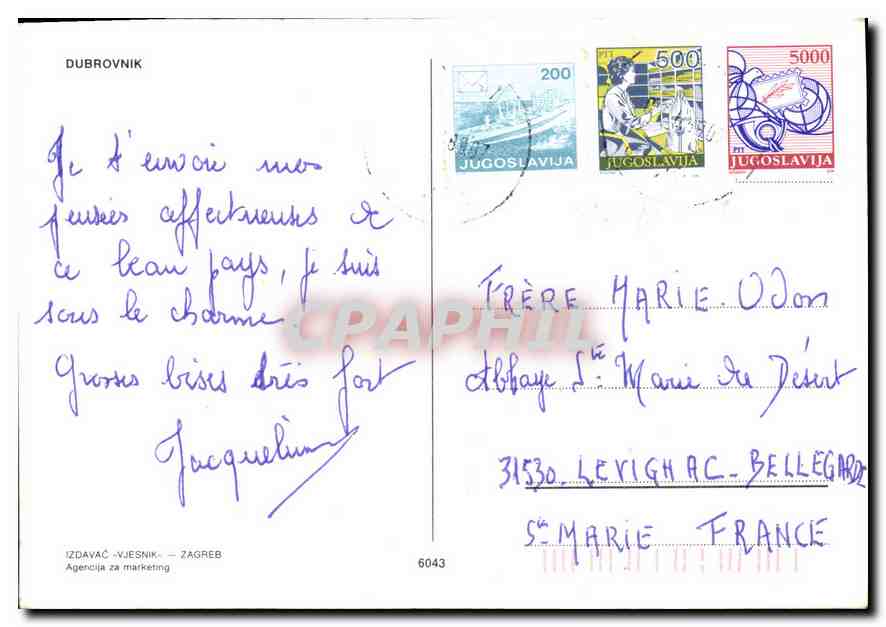 DUBROVNIK
200
JUGOSLAVIJA
PTT 500
JUGOSLAVIJA
5000
PTT JUGOSLAVIJA
Je t'envoie mes
pensées affectueuses de
ce beau pays, je suis
sous le charme.
Grosses bises très fort
Jacqueline
CPAPHIL
FRÈRE MARIE. Odon
Abbaye Ste Marie de Désert
31530. LEVIGNAC-BELLEGARDE
Ste MARIE FRANCE
IZDAVAČ «VJESNIK» — ZAGREB
Agencija za marketing
6043